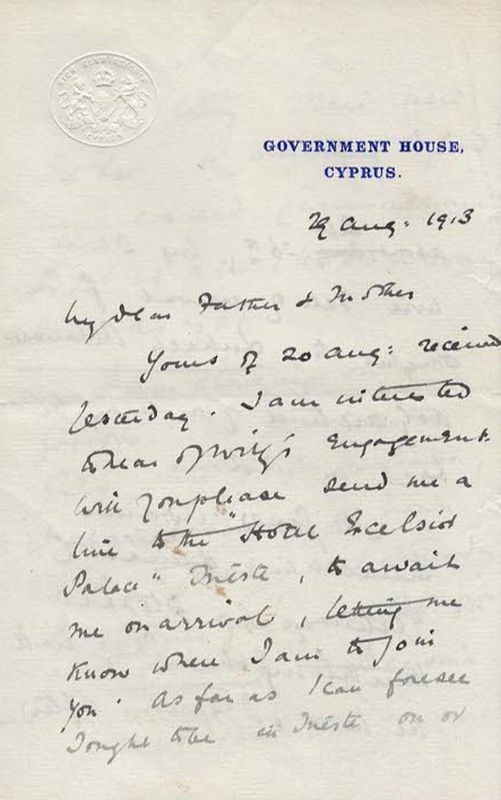 HIGH COMMISSIONER
CYPRUS
GOVERNMENT HOUSE,
CYPRUS.
29 Aug: 1913
My dear Father & Mother
Yours of 20 Aug: received
yesterday. I am interested
to hear of engagement.
Will you please send me a
line to the "Hotel Excelsior
Palace" Trieste, to await
me on arrival, letting me
know where I am to join
you. As far as I can foresee
I ought to be in Trieste on or